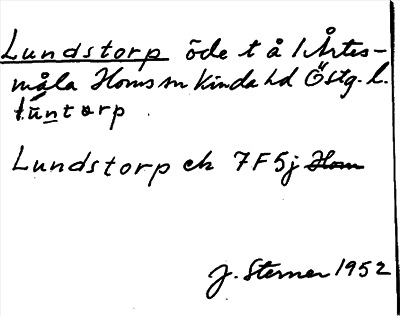 Lundstorp öde t å 1 Årtes-
måla Horns sn Kinda hd Östg. l.
lu̇ntorp
Lundstorp ek 7F5j Horn
J. Sterner 1952